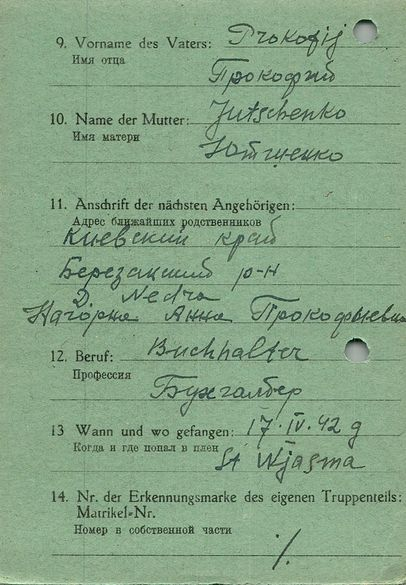 9. Vorname des Vaters: Prokofij
Имя отца
Прокофий
10. Name der Mutter: Jutschenko
Имя матери
Ютщенко
11. Anschrift der nächsten Angehörigen:
Адрес ближайших родственников
Киевский край
Березанский р-н
D. Nedra
Нагорна Анна Прокофьевна
12. Beruf: Buchhalter
Профессия
Бухгалбер
13 Wann und wo gefangen: 17.IV.42 g
Когда и где попал в плен
St Wjasma
14. Nr. der Erkennungsmarke des eigenen Truppenteils:
Matrikel-Nr.
Номер в собственной части